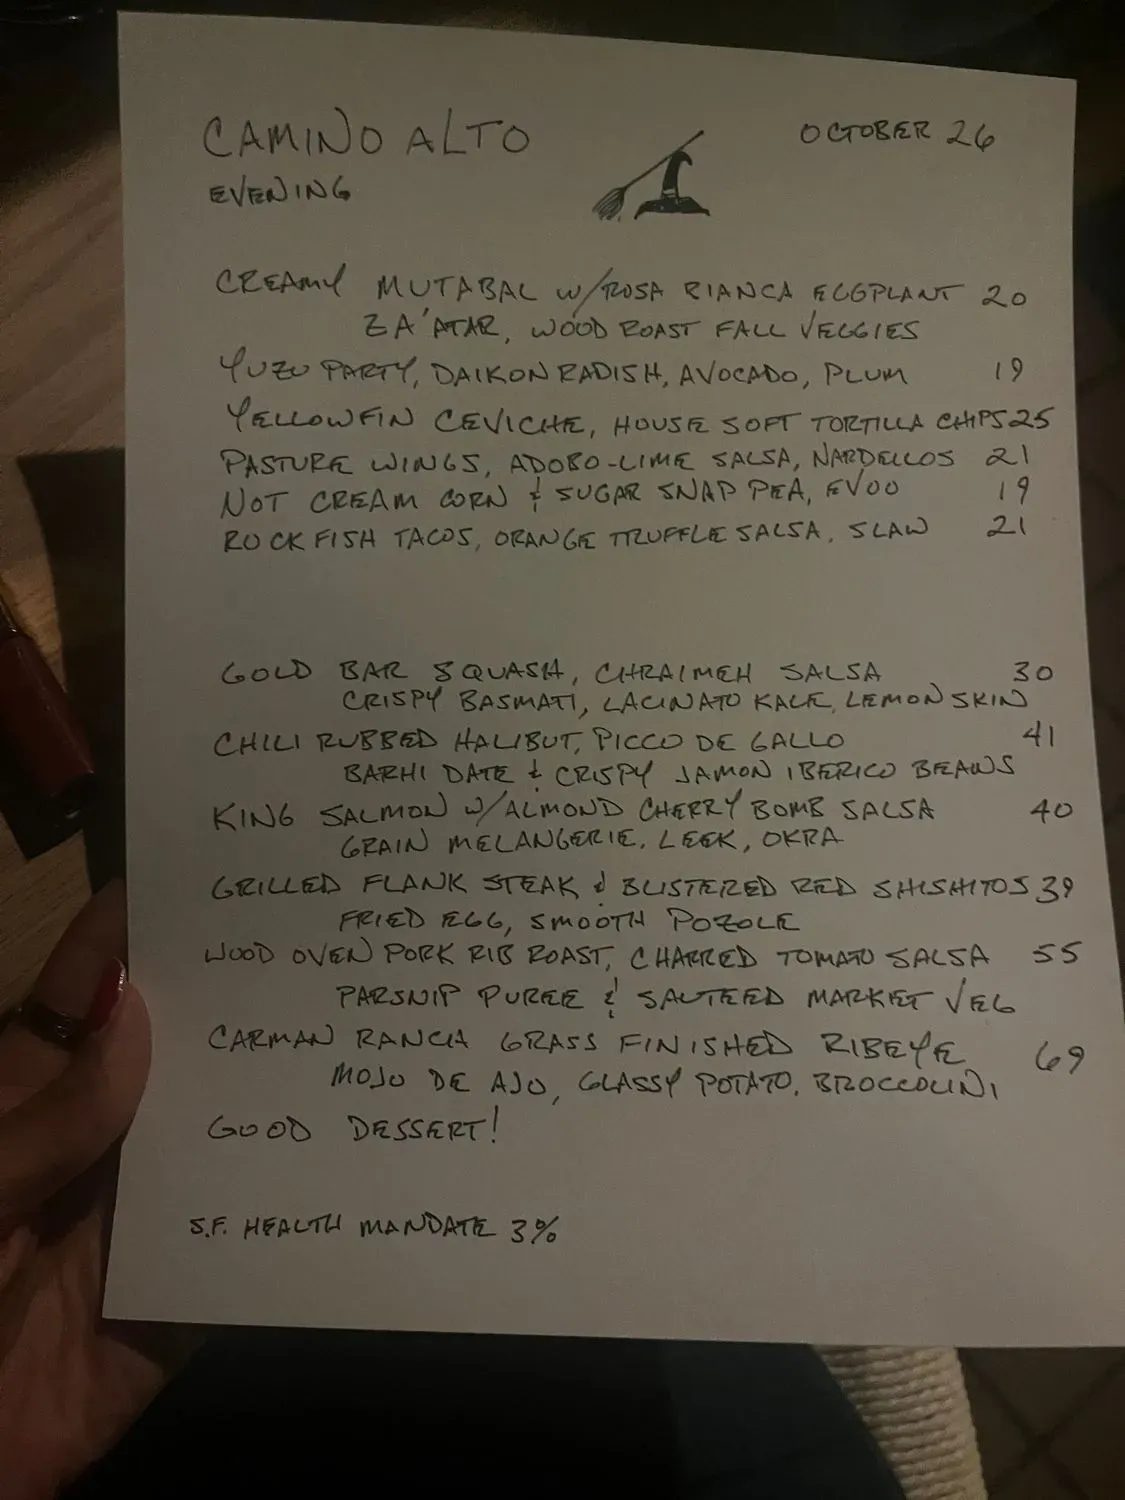 CAMINO ALTO
OCTOBER 26
EVENING
CREAMY MUTABAL W/ROSA BIANCA EGGPLANT 20
ZA'ATAR, WOOD ROAST FALL VEGGIES
YUZU PARTY, DAIKON RADISH, AVOCADO, PLUM 19
YELLOWFIN CEVICHE, HOUSE SOFT TORTILLA CHIPS 25
PASTURE WINGS, ADOBO-LIME SALSA, NARDELLOS 21
NOT CREAM CORN & SUGAR SNAP PEA, EVOO 19
ROCKFISH TACOS, ORANGE TRUFFLE SALSA, SLAW 21
GOLD BAR SQUASH, CHRAIMEH SALSA 30
CRISPY BASMATI, LACINATO KALE, LEMON SKIN
CHILI RUBBED HALIBUT, PICCO DE GALLO 41
BARHI DATE & CRISPY JAMON IBERICO BEANS
KING SALMON W/ALMOND CHERRY BOMB SALSA 40
GRAIN MELANGERIE, LEEK, OKRA
GRILLED FLANK STEAK & BLISTERED RED SHISHITOS 39
FRIED EGG, SMOOTH POZOLE
WOOD OVEN PORK RIB ROAST, CHARRED TOMATO SALSA 55
PARSNIP PUREE & SAUTEED MARKET VEG
CARMAN RANCH GRASS FINISHED RIBEYE 69
MOJO DE AJO, GLASSY POTATO, BROCCOLINI
GOOD DESSERT!
S.F. HEALTH MANDATE 3%